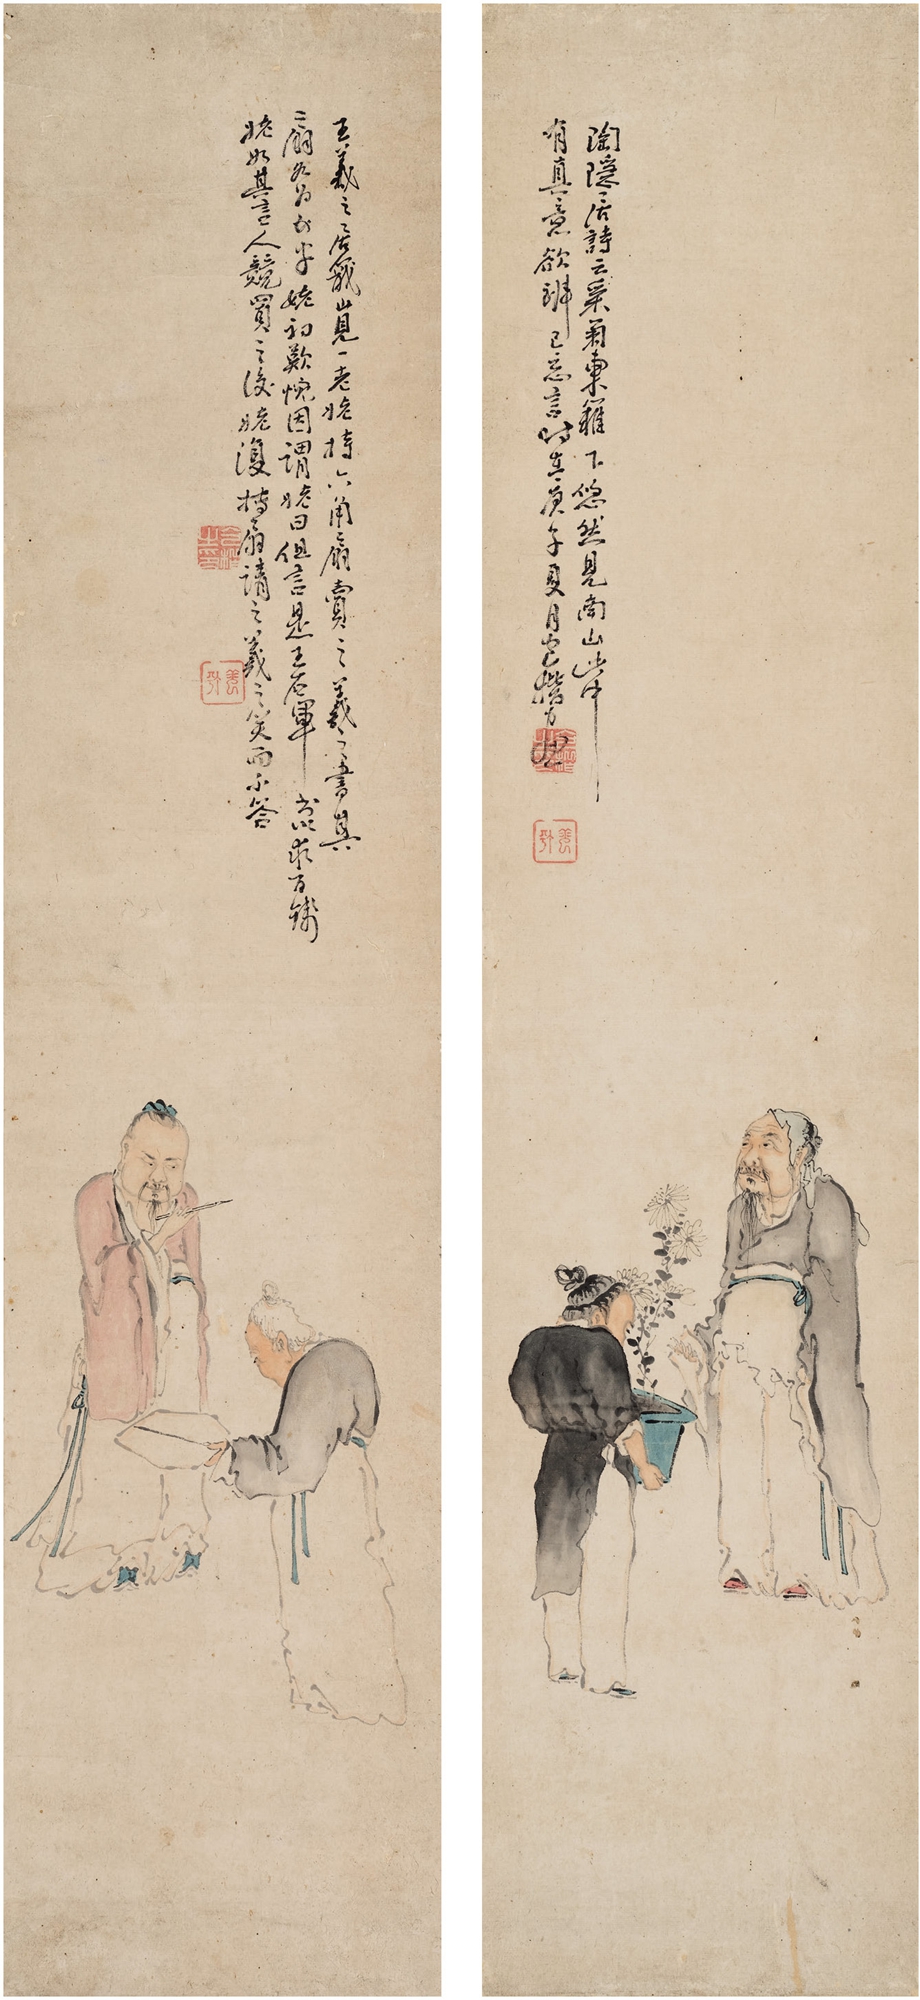 陶隱居詩云采菊東籬下悠然見南山此中
有真意欲辨已忘言時在庚子夏月
王羲之居蕺山見一老姥持六角扇賣之羲之書其
扇各為五字姥初歎惋因謂姥曰但言是王右軍書以求百錢
姥如其言人競買之後姥復持扇請之羲之笑而不答